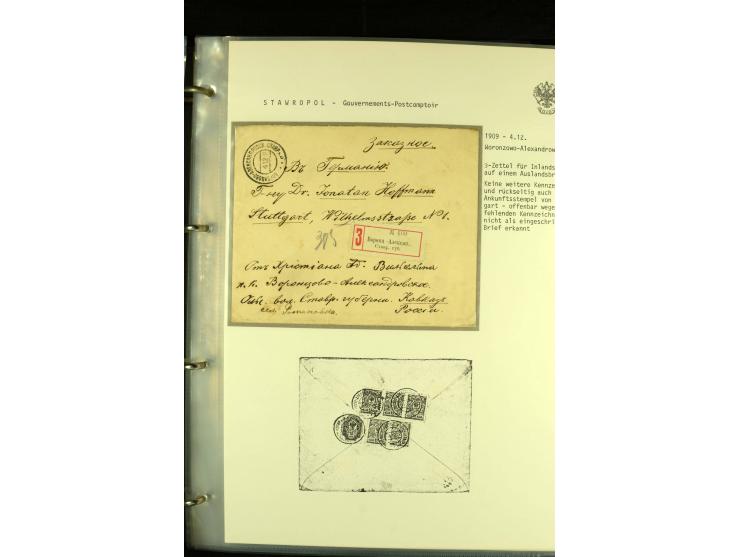 STAWROPOL - Gouvernements-Postcomptoir
1909 - 4.12.
Woronzowo-Alexandrow
З-Zettel für Inlands
auf einem Auslandsbr
Keine weitere Kennze
und rückseitig auch
Ankunftsstempel von
gart - offenbar wege
fehlenden Kennzeichn
nicht als eingeschri
Brief erkannt
Заказное.
Въ Германію.
Dr. Jonatan Hoffmann
Stuttgart, Wilhelmsstraße N 1.
З
Воронц.-Алексан.
Ставр. губ.
Отъ Христіана
Воронцово-Александровское
вол. Ставр. губерніи. Кавказъ
Россія.